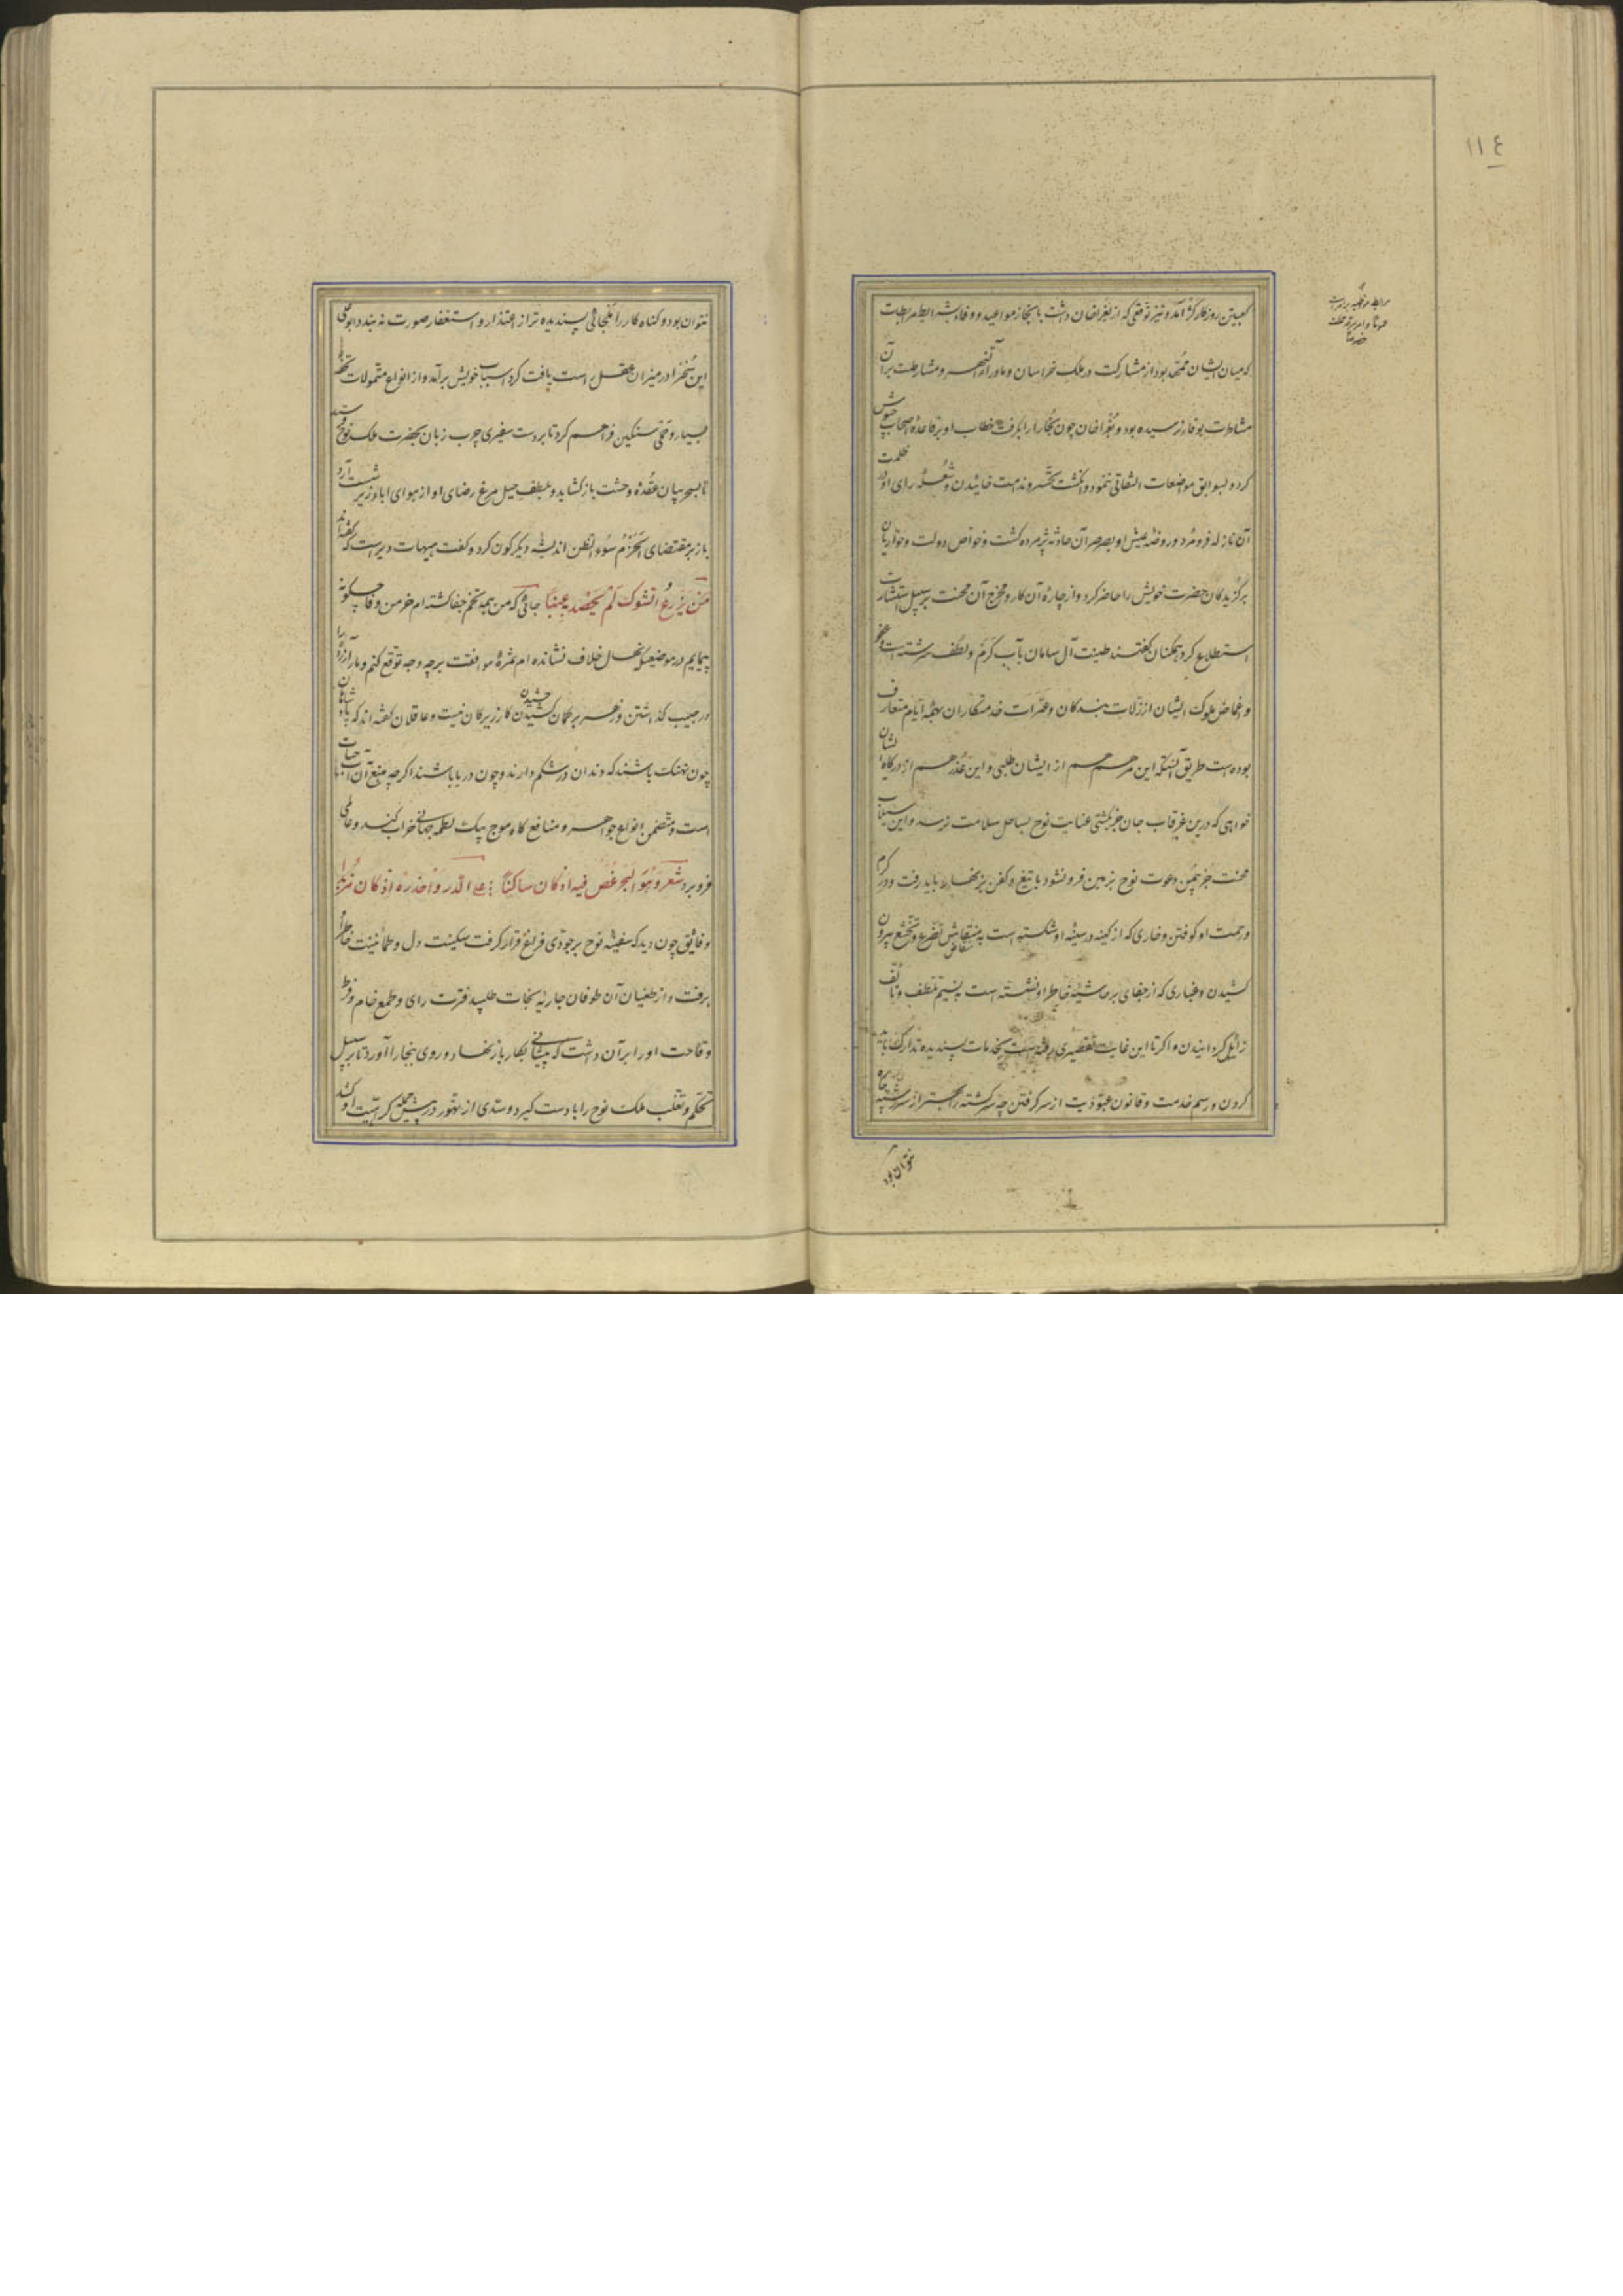 ١١٤
کعبتین روزگار کژ آمد و نیز توقعی که از بغراخان داشت بانجاز مواعید و وفا بشرایط مرابطات
که میان ایشان ممهد بود از مشارکت در ملک خراسان و ماوراء النهر و مشارطت بر آن
مشاطرت بوفا نرسیده بود و بغراخان چون بخارا را بگرفت خطاب او بر قاعده اصحاب جیوش
کرد و بسوابق مواضعات التفاتی ننمود و انگشت تحسر و ندامت خائیدن و شعله رای او در ظلمت
آن نازله فرو مرد و روضه عیش او بصرصر آن حادثه پژمرده گشت و خواص دولت و حواریان
برگزیدگان حضرت خویش را حاضر کرد و از چاره آن کار و مخرج آن محنت بر سبیل استشارت
استطلاع کرد همگنان گفتند طینت آل سامان بآب کرم و لطف سرشته است و عفو
و اغماض ملوک ایشان از زلات بندگان و عثرات خدمتکاران بهمه ایام متعارف
بوده است طریق آنستکه این مرهم هم از ایشان طلبی و این عذر هم از درگاه ایشان
خواهی که درین غرقاب جان جز بکشتی عنایت نوح بساحل سلامت نرسد و این سیلاب
محنت جز بیمن دعوت نوح بزمین فرو نشود با تیغ و کفن بزنهار باید رفت و در کرم
و رحمت او کوفتن و خاری که از کینه در سینه او شکسته است بمنقاش تضرع و تخشع بیرون
کشیدن و غباری که از جفای بر حاشیه خاطر او نشسته است بنسیم تلطف و تألف
زائل گردانیدن و اگر تا این غایت تقصیری رفته است بخدمات پسندیده تدارک
کردن و رسم خدمت و قانون عبودیت از سر گرفتن چه سرگشته را بهتر از سررشته
نتوان بود
نتوان بود و گناه کار را ملجائی پسندیده تر از اعتذار و استغفار صورت نه بندد ابوعلی
این سخن را در میزان عقل راست یافت کرد اسباب خویش برآمد و از انواع متمولات تحفه
بسیار و حملی سنگین فراهم کرد تا بر دست سفیری چرب زبان بحضرت ملک نوح فرستد
تا بسحر بیان عقده وحشت باز گشاید و بلطف حیل مرغ رضای او از هوای ابا در زیر شست آرد
باز بر مقتضای الحزم سوء الظن اندیشه دیگرگون کرد و گفت هیهات دیر است که گفته‌اند
من یزرع الشوک لم یحصد به عنبا جائی که من همه تخم جفا کشته ام خرمن وفا چگونه
پیمایم در موضعی که نهال خلاف نشانده ام ثمره موافقت بر چه وجه توقع کنم و مار آزرده را
در جیب گذاشتن و زهر بر گمان کشیدن چشیدن کار زیرکان نیست و عاقلان گفته اند که پادشاهان
چون نهنگ باشند که دندان در شکم دارند و چون دریا باشند اگر چه منبع آن آب حیات
است و متضمن انواع جواهر و منافع گاه موج بیک لطمه جهانی خراب کند و عالمی
فرو برد شعر و هو البحر غص فیه اذ کان ساکنا علی الدر و احذره اذ کان مزبدا
و فائق چون دید که سفینه نوح بر جودی فراغ قرار گرفت سکینت دل و طمأنینت خاطر او
برفت و از طغیان آن طوفان جاریه نجات طلبید فترت رای و طمع خام و فرط
وقاحت او را بر آن داشت که پیشانی بکار باز نهاد و روی ببخارا آورد تا بر سبیل
تحکم و تغلب ملک نوح را با دست گیرد و سدی از تهور در پیش حمله